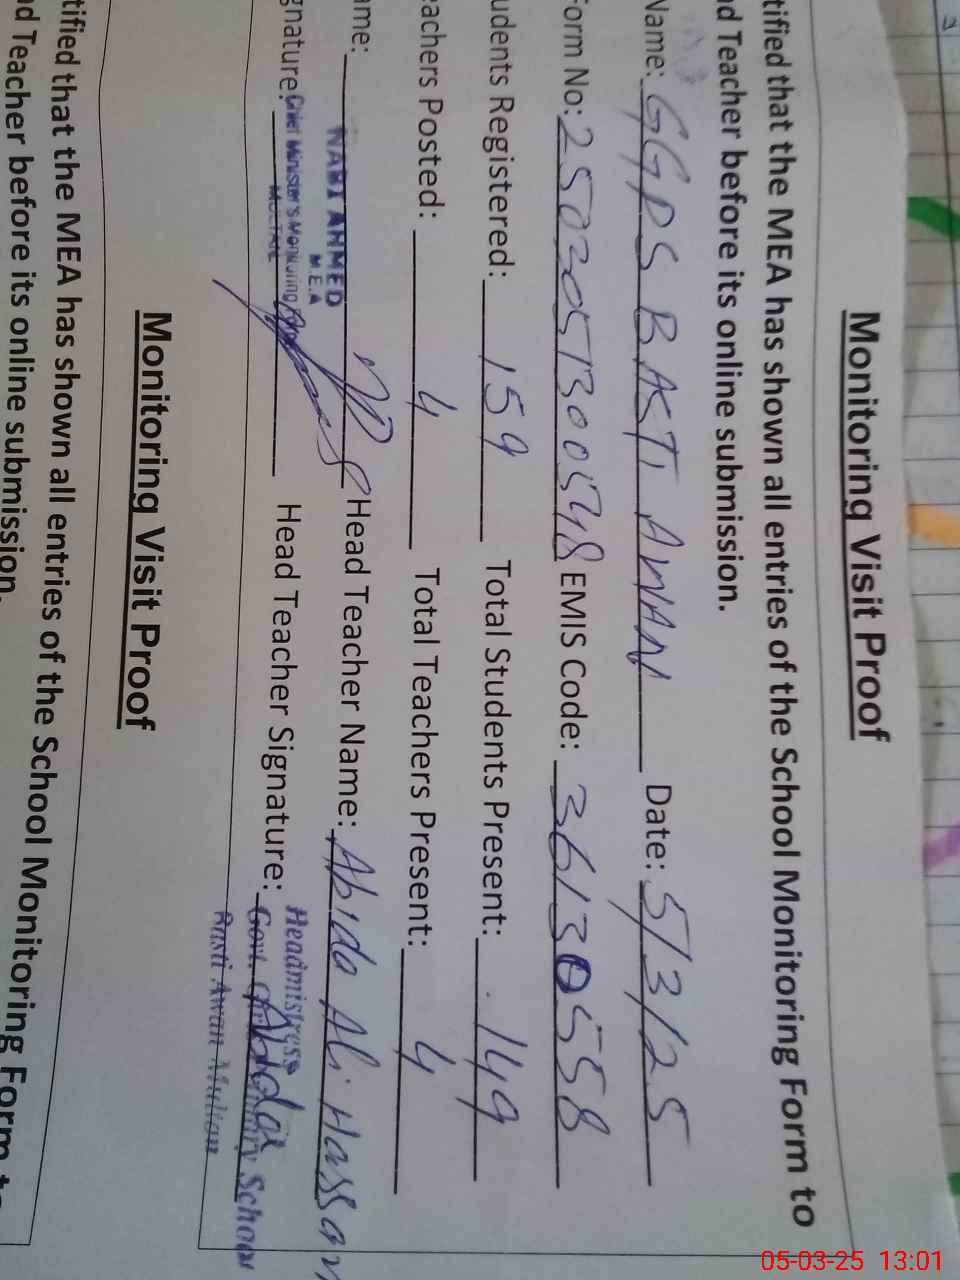 Monitoring Visit Proof
tified that the MEA has shown all entries of the School Monitoring Form to
d Teacher before its online submission.
Name: GGPS BASTI AWAN Date: 5/3/25
Form No: 2503051300548 EMIS Code: 36130558
udents Registered: 159 Total Students Present: 149
eachers Posted: 4 Total Teachers Present: 4
ame: NABI AHMED M.E.A Head Teacher Name: Abida Ali Hassan
gnature: Chief Minister's Monitoring MULTAN Head Teacher Signature: Abida
Headmistress
Govt. School
Basti Awan Multan
Monitoring Visit Proof
tified that the MEA has shown all entries of the School Monitoring Form to
d Teacher before its online submission.
05-03-25 13:01